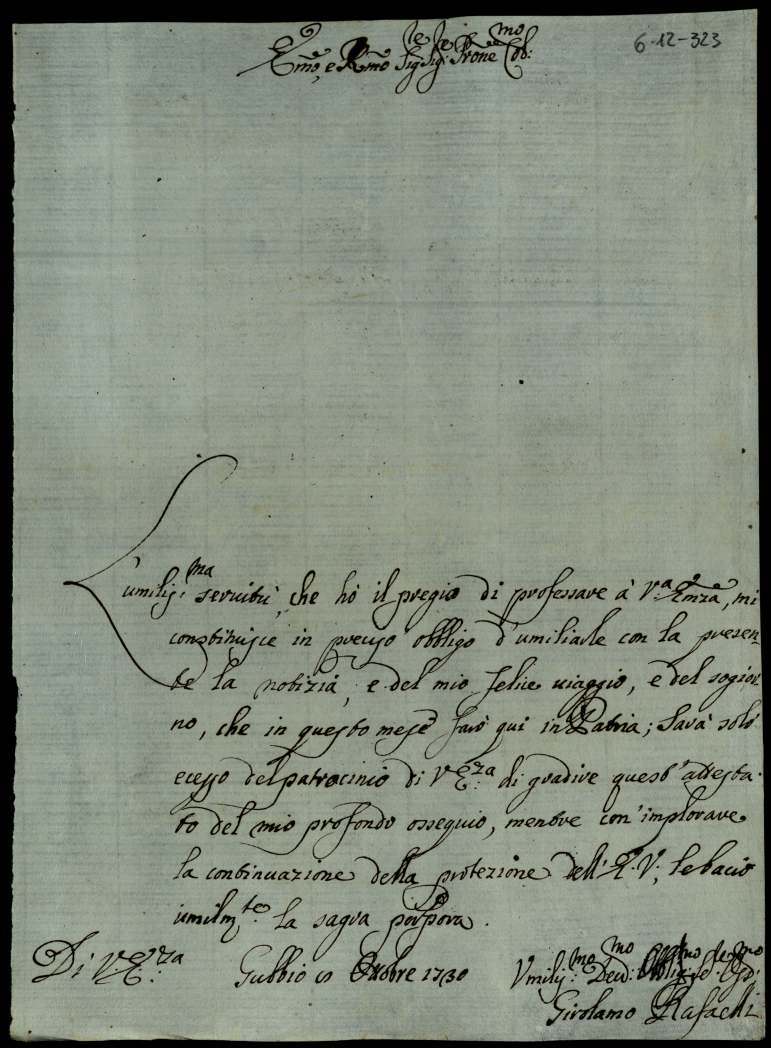 6-12-323
Em̃o, e Rm̃o Sig.re Sig.re Prõne Col.mo
L'umiliss:ma servitù, che hò il pregio di professare à V.a Em̃za, mi
constituisce in preciso obbligo d'umiliarle con la presen-
te la notizia, e del mio felice viaggio, e del sogior-
no, che in questo mese farò quì in Patria; Sarà solo
ecesso del patrocinio di V.E.za di gradire quest'attesta-
to del mio profondo ossequio, mentre con'implorare
la continuazione della protezione dell'E.V., le bacio
umilm.te la sagra porpora.
Di V.E.za
Gubbio Ottobre 1730
Vmiliss:mo Dev:mo Obblig:mo Se.re Osseq:mo
Girolamo Rafaelli